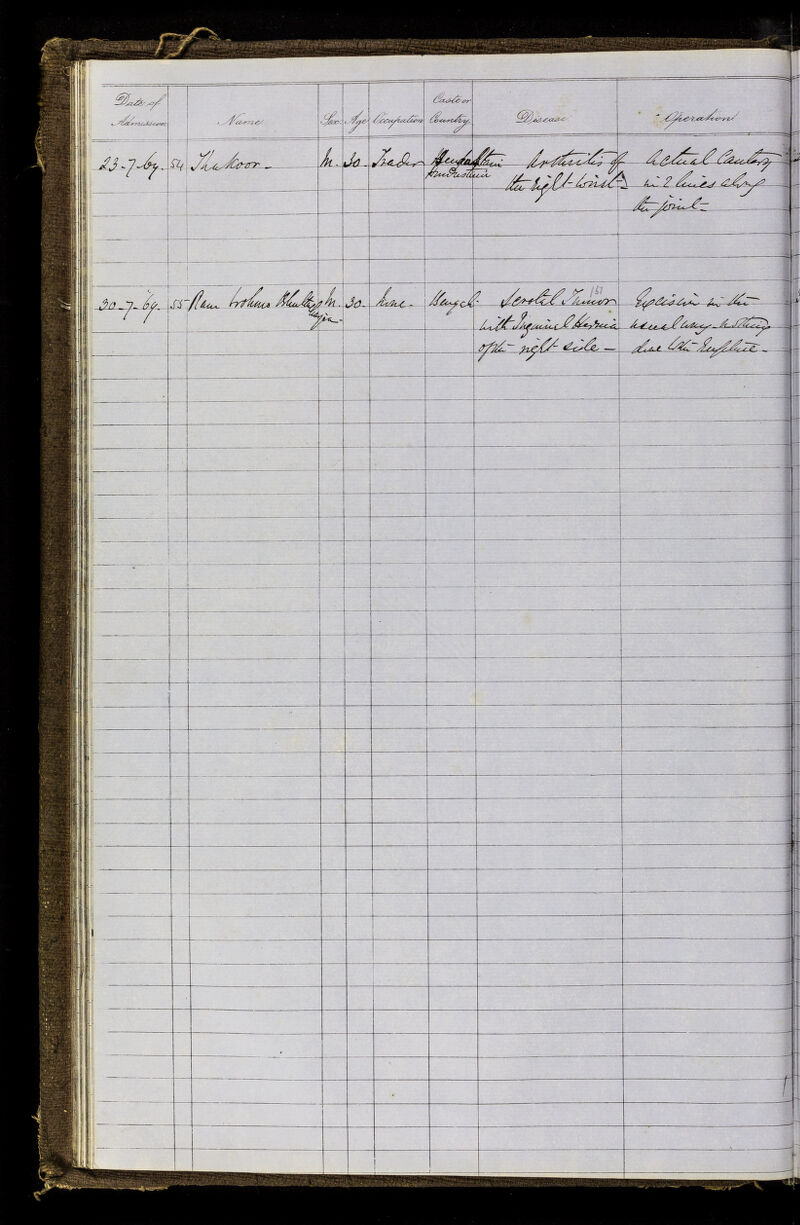 Date of Admission Name Sex Age Occupation Caste or Country Disease Operation
23-7-69. 54 Thakoor - M. 30- Trader Arthritis of Actual Cautery
Hindustani the right wrist- in 2 lines along
the joint-
30-7-69. 55 Ram Brohmo M. 30- None - Bengal- Scrotal Tumor Excision in the
with Inguinal Hernia usual way - nothing
of the right side - done to the